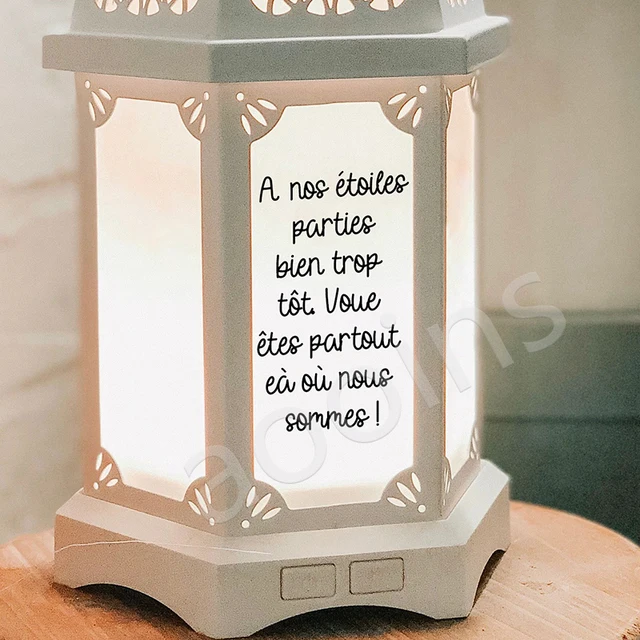 A nos étoiles
parties
bien trop
tôt. Voue
êtes partout
eà où nous
sommes !
aooins